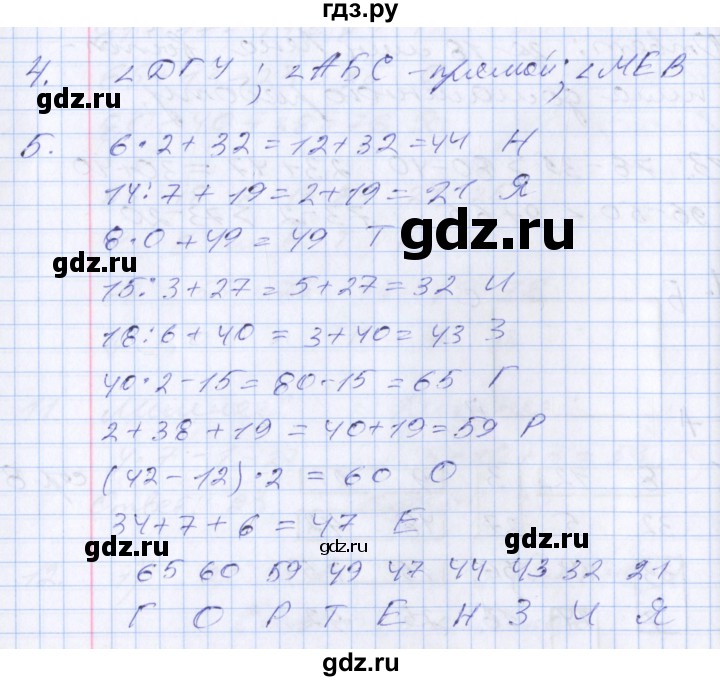 гдз.ру
4. ∠ДГУ; ∠АБС - прямой; ∠МЕВ
gdz.ru
5. 6·2+32=12+32=44 Н
14:7+19=2+19=21 Я
gdz.ru
8·0+49=49 Т
gdz.ru
15:3+27=5+27=32 И
18:6+40=3+40=43 З
40·2-15=80-15=65 Г
2+38+19=40+19=59 Р
(42-12)·2=60 О
34+7+6=47 Е
gdz.ru gdz.ru gdz.ru
65 60 59 49 47 44 43 32 21
Г О Р Т Е Н З И Я
gdz.ru